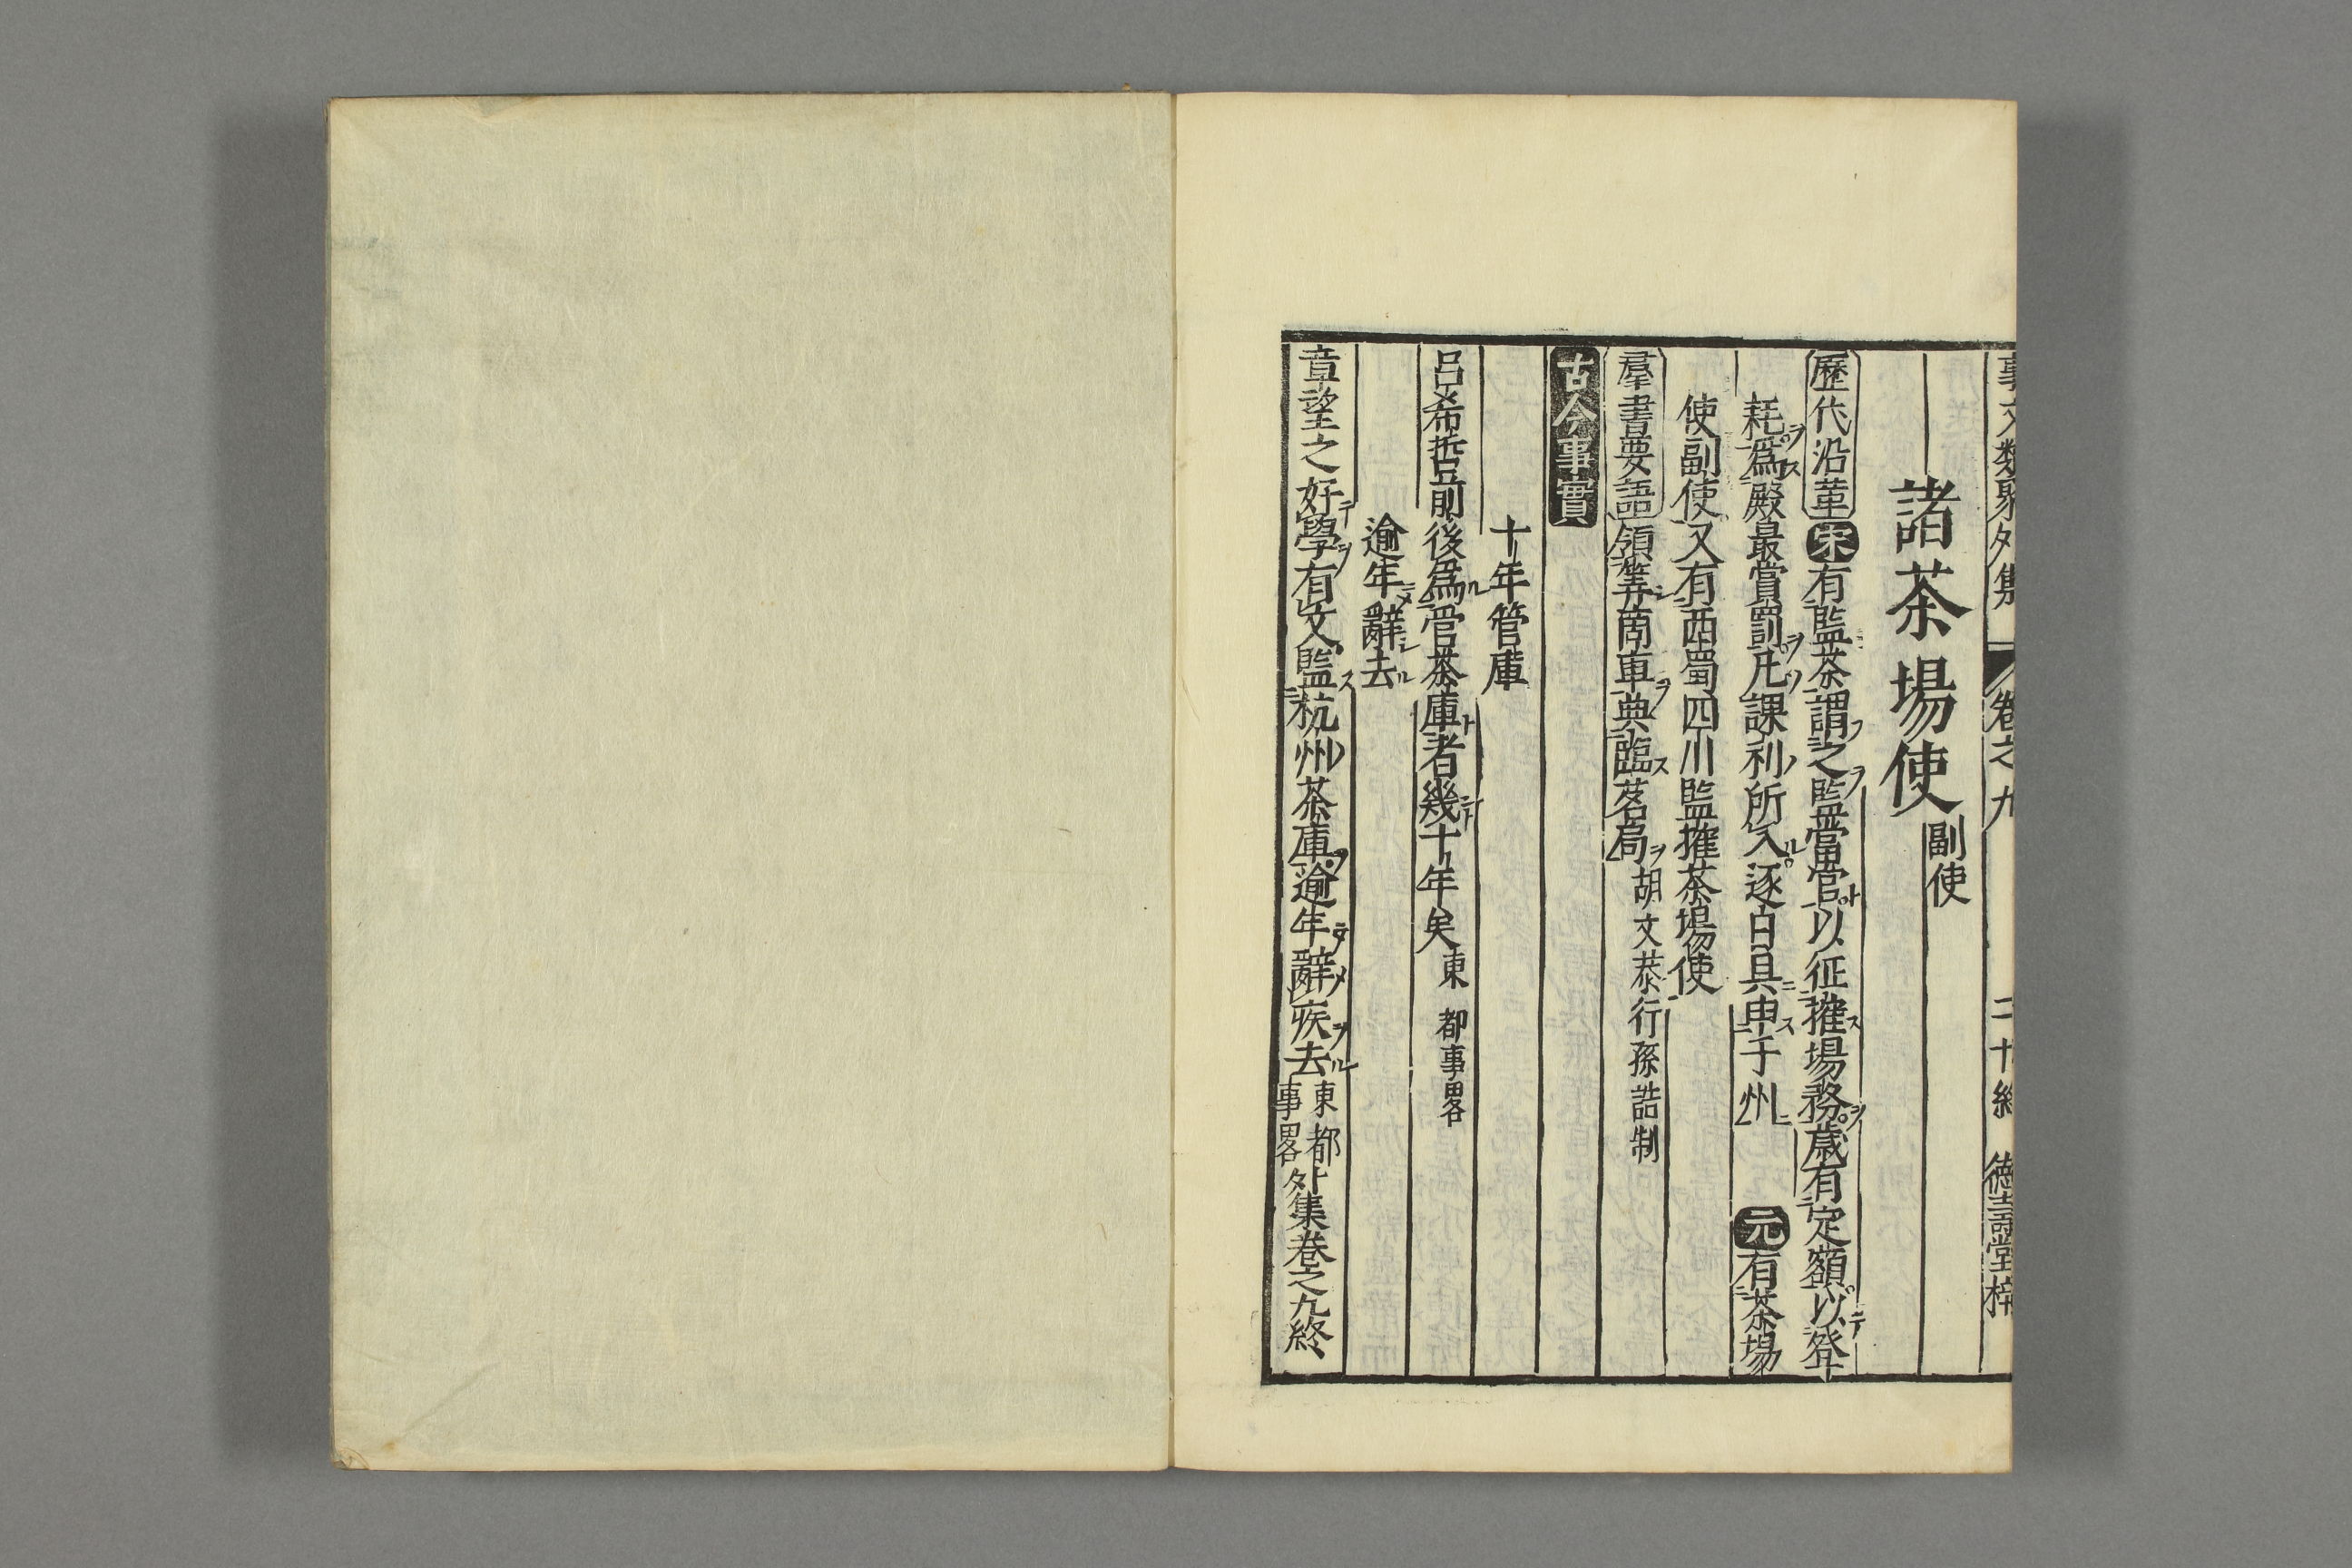 事文類聚外集 卷之九 二十終 德壽堂梓
諸茶場使 副使
歷代沿革 宋 有監茶謂之監當官以征搉場務歲有定額以登
耗爲殿最賞罰凡課利所入逐日具申于州 元 有茶場
使副使又有西蜀四川監搉茶場使
羣書要語 領筭商車典臨茗局 胡文恭行孫誥制
古今事實
十年管庫
呂希哲前後爲管茶庫者幾十年矣 東都事畧
逾年辭去
章望之好學有文監杭州茶庫逾年辭疾去 東都事畧 外集卷之九終